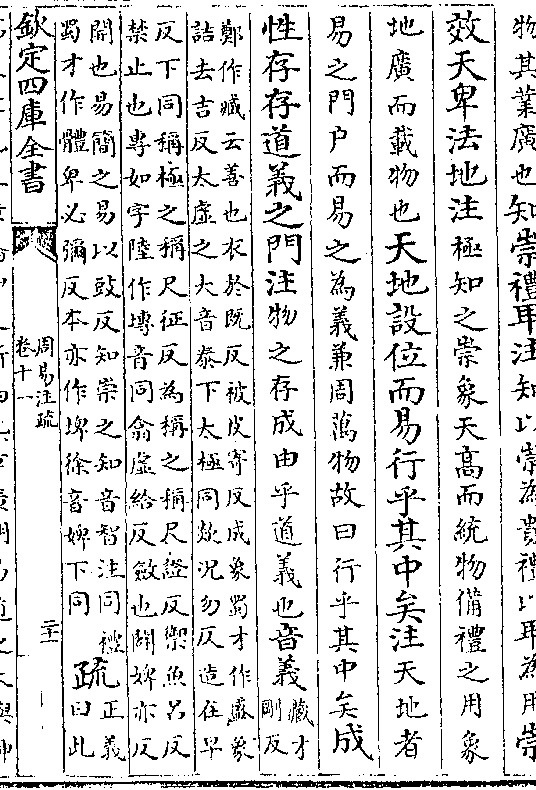 物其業廣也知崇禮卑注知以崇為貴禮以卑為用崇
效天卑法地注極知之崇象天高而統物備禮之用象
地廣而載物也天地設位而易行乎其中矣注天地者
易之門户而易之為義兼周萬物故曰行乎其中矣成
性存存道義之門注物之存成由乎道義也音義藏才
剛反
鄭作臧云善也衣於既反被皮寄反成象蜀才作盛象
詰去吉反太虚之大音泰下太極同欻況勿反造在早
反下同稱極之稱尺征反為稱之稱尺證反禦魚呂反
禁止也專如字陸作塼音同翕虚給反斂也闢婢亦反
開也易簡之易以豉反知崇之知音智注同禮
蜀才作體卑必彌反本亦作埤徐音婢下同
疏正義
曰此
欽定四庫全書
周易注疏
卷十一
二十一